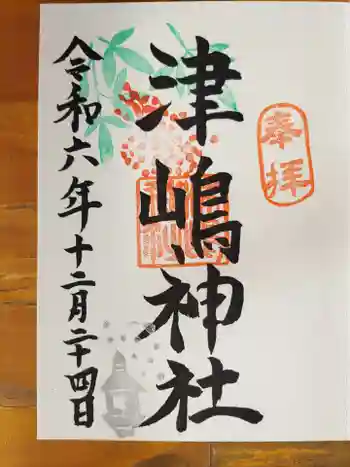 奉拝
津嶋神社
令和六年十二月二十四日